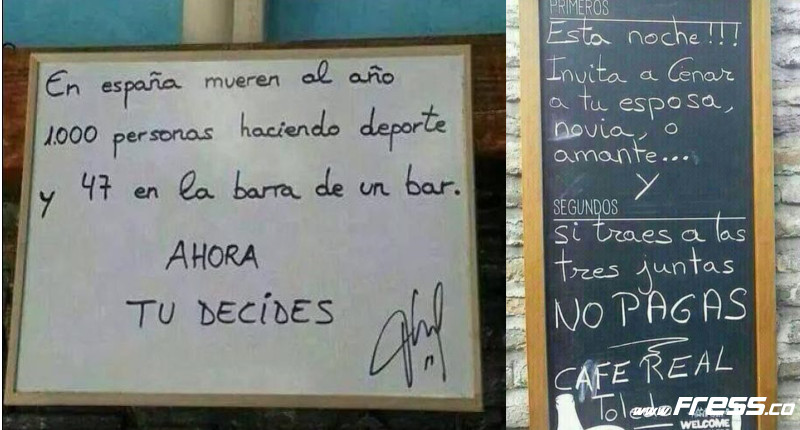 En españa mueren al año
1.000 personas haciendo deporte
y 47 en la barra de un bar.
AHORA
TU DECIDES
PRIMEROS
Esta noche!!!
Invita a Cenar
a tu esposa,
novia, o
amante...
y
SEGUNDOS
si traes a las
tres juntas
NO PAGAS
CAFE REAL
Toledo
www.FRESS.co
WELCOME